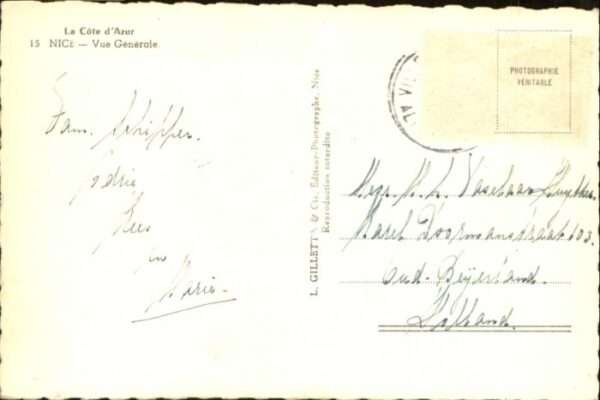 La Côte d'Azur
15 NICE — Vue Générale
Fam. Schipper.
Kees
en
Marie-
L. GILLETTA & Cie, Éditeur-Photographe, Nice
Reproduction interdite
PHOTOGRAPHIE
VÉRITABLE
Karel Doormanstraat 103.
Oud-Beijerland.
Holland.